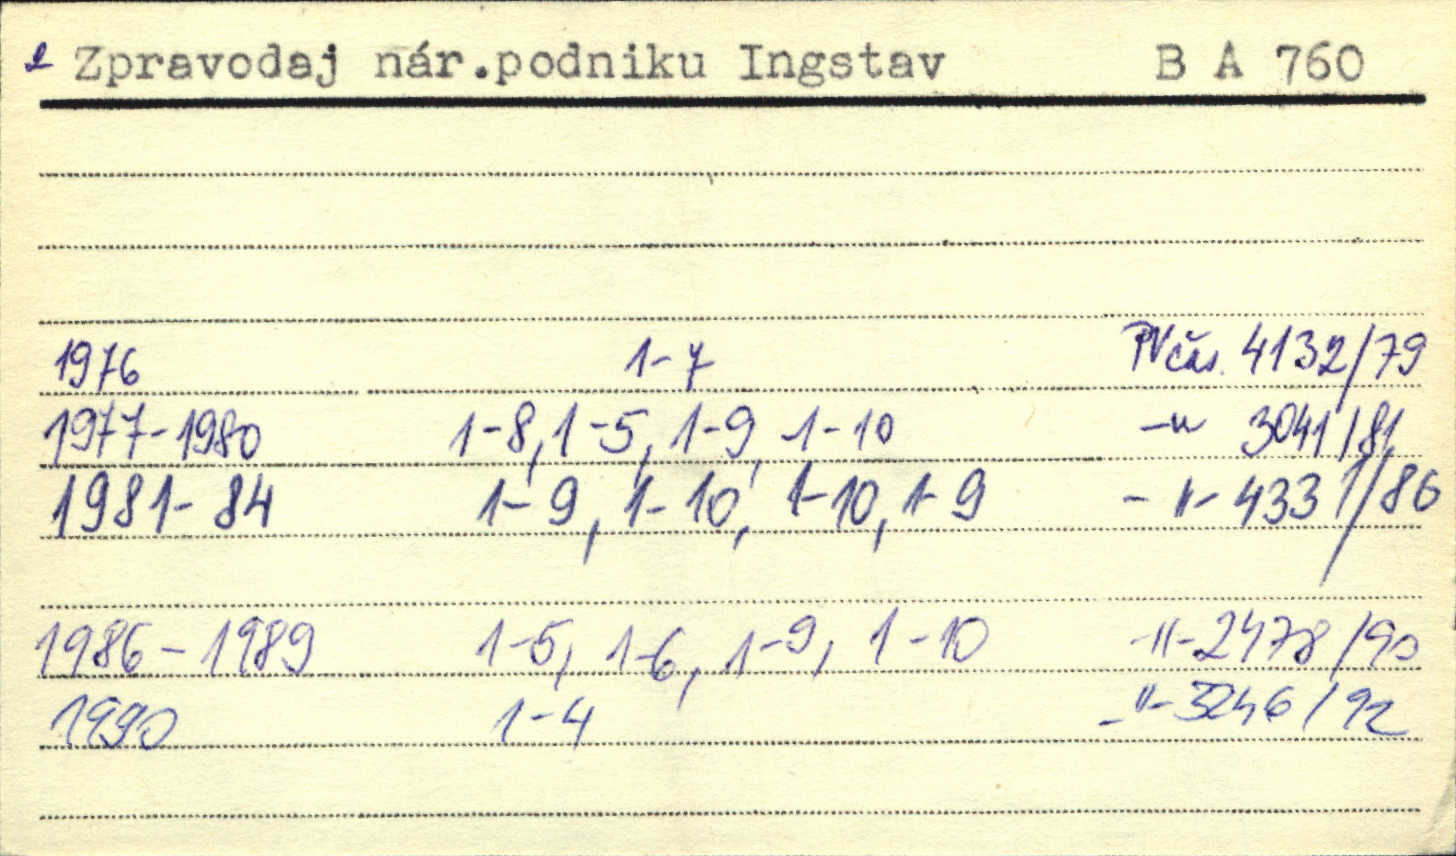 Zpravodaj nár.podniku Ingstav B A 760
1976 1-7 PVčás. 4132/79
1977-1980 1-8, 1-5, 1-9, 1-10 -"- 3041/81
1981-84 1-9, 1-10, 1-10, 1-9 -"- 4331/86
1986-1989 1-5, 1-6, 1-9, 1-10 -"- 2478/90
1990 1-4 -"- 3246/92